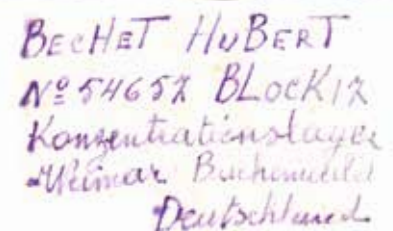 BECHET HUBERT
Nº 54652 BLOCK 12
Konzentrationslager
-Weimar Buchenwald
Deutschland